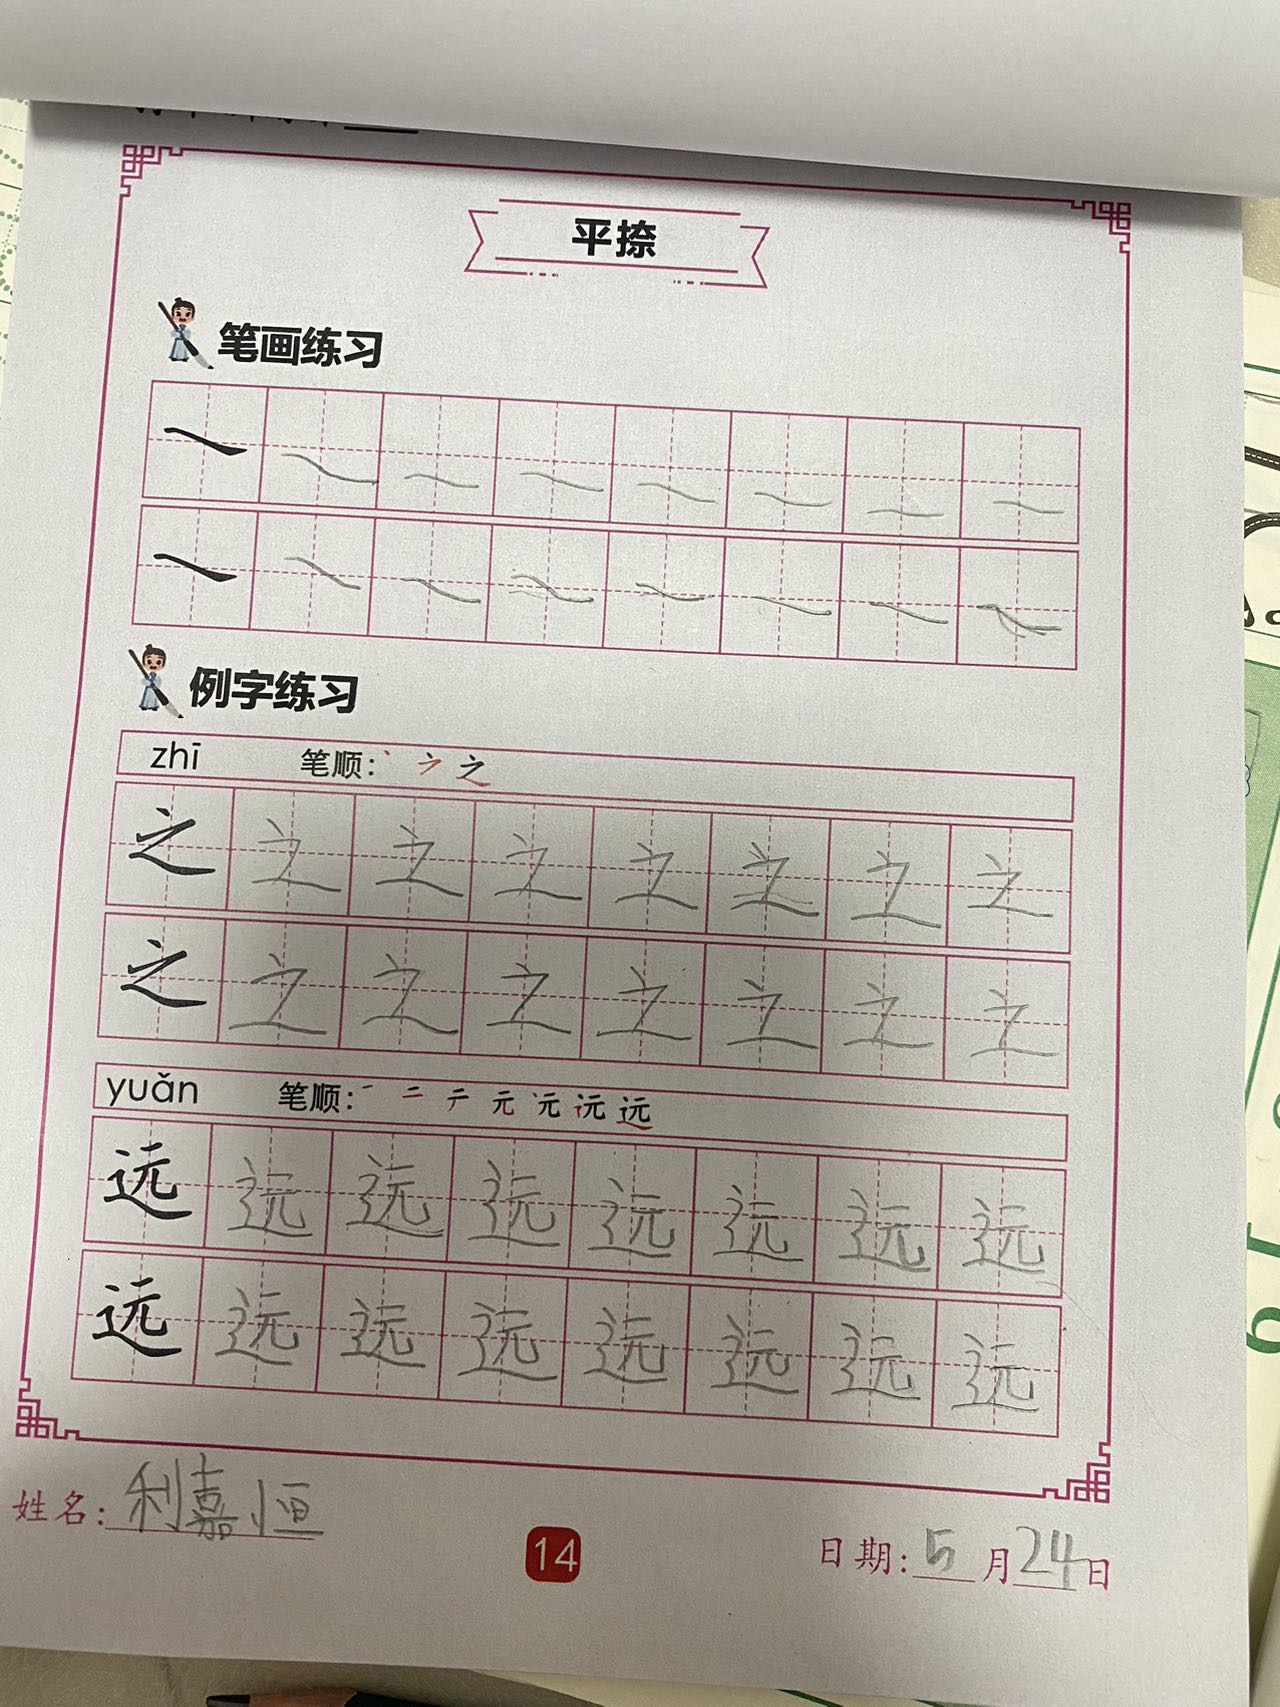 平捺
笔画练习
例字练习
zhī 笔顺： 丶 ㇇ 之
之 之 之 之 之 之 之 之
之 之 之 之 之 之 之 之
yuǎn 笔顺： 一 二 テ 元 远 远 远
远 远 远 远 远 远 远 远
远 远 远 远 远 远 远 远
姓名：利嘉恒
14
日期：5月24日